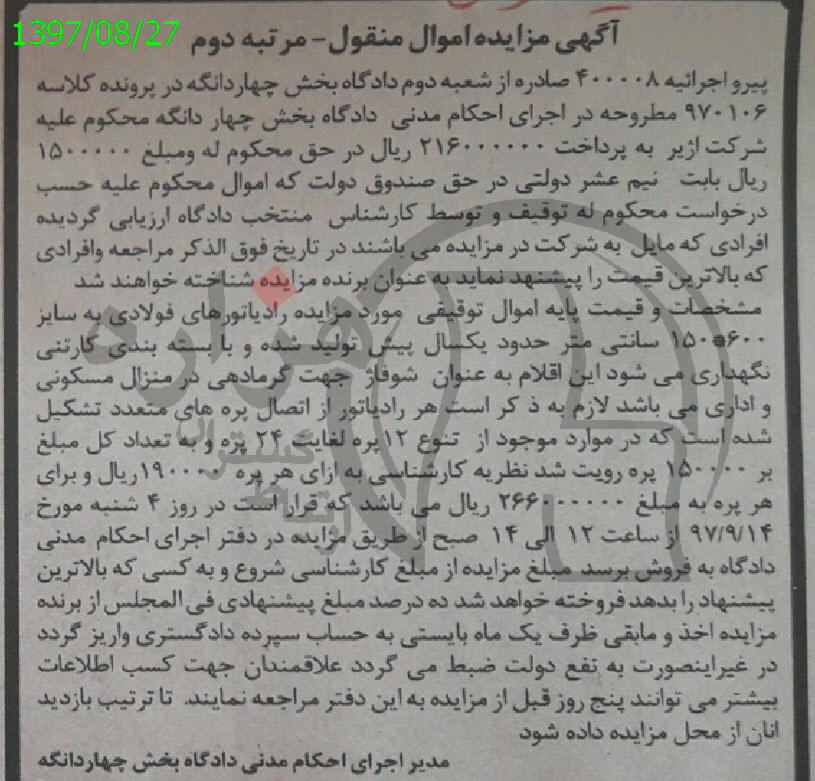 1397/08/27
آگهی مزایده اموال منقول- مرتبه دوم
پیرو اجرائیه ۴۰۰۰۰۸ صادره از شعبه دوم دادگاه بخش چهاردانگه در پرونده کلاسه
۹۷۰۱۰۶ مطروحه در اجرای احکام مدنی دادگاه بخش چهار دانگه محکوم علیه
شرکت اژیر به پرداخت ۲۱۶۰۰۰۰۰۰۰ ریال در حق محکوم له ومبلغ ۱۵۰۰۰۰۰
ریال بابت نیم عشر دولتی در حق صندوق دولت که اموال محکوم علیه حسب
درخواست محکوم له توقیف و توسط کارشناس منتخب دادگاه ارزیابی گردیده
افرادی که مایل به شرکت در مزایده می باشند در تاریخ فوق الذکر مراجعه وافرادی
که بالاترین قیمت را پیشنهد نماید به عنوان برنده مزایده شناخته خواهند شد
مشخصات و قیمت پایه اموال توقیفی مورد مزایده رادیاتورهای فولادی به سایز
۶۰۰*۱۵۰ سانتی متر حدود یکسال پیش تولید شده و با بسته بندی کارتنی
نگهداری می شود این اقلام به عنوان شوفاژ جهت گرمادهی در منزال مسکونی
و اداری می باشد لازم به ذکر است هر رادیاتور از اتصال پره های متعدد تشکیل
شده است که در موارد موجود از تنوع ۱۲پره لغایت ۲۴ پژه و به تعداد کل مبلغ
بر ۱۵۰۰۰۰ پره رویت شد نظریه کارشناسی به ازای هر پره ۱۹۰۰۰۰ریال و برای
هر پره به مبلغ ۲۶۶۰۰۰۰۰۰۰ ریال می باشد که قرار است در روز ۴ شنبه مورخ
۹۷/۹/۱۴ از ساعت ۱۲ الی ۱۴ صبح از طریق مزایده در دفتر اجرای احکام مدنی
دادگاه به فروش برسد مبلغ مزایده از مبلغ کارشناسی شروع و به کسی که بالاترین
پیشنهاد را بدهد فروخته خواهد شد ده درصد مبلغ پیشنهادی فی المجلس از برنده
مزایده اخذ و مابقی ظرف یک ماه بایستی به حساب سپرده دادگستری واریز گردد
در غیراینصورت به تفع دولت ضبط می گردد علاقمندان جهت کسب اطلاعات
بیشتر می توانند پنج روز قبل از مزایده به این دفتر مراجعه نمایند. تا ترتیب بازدید
انان از محل مزایده داده شود
مدیر اجرای احکام مدنی دادگاه بخش چهاردانگه